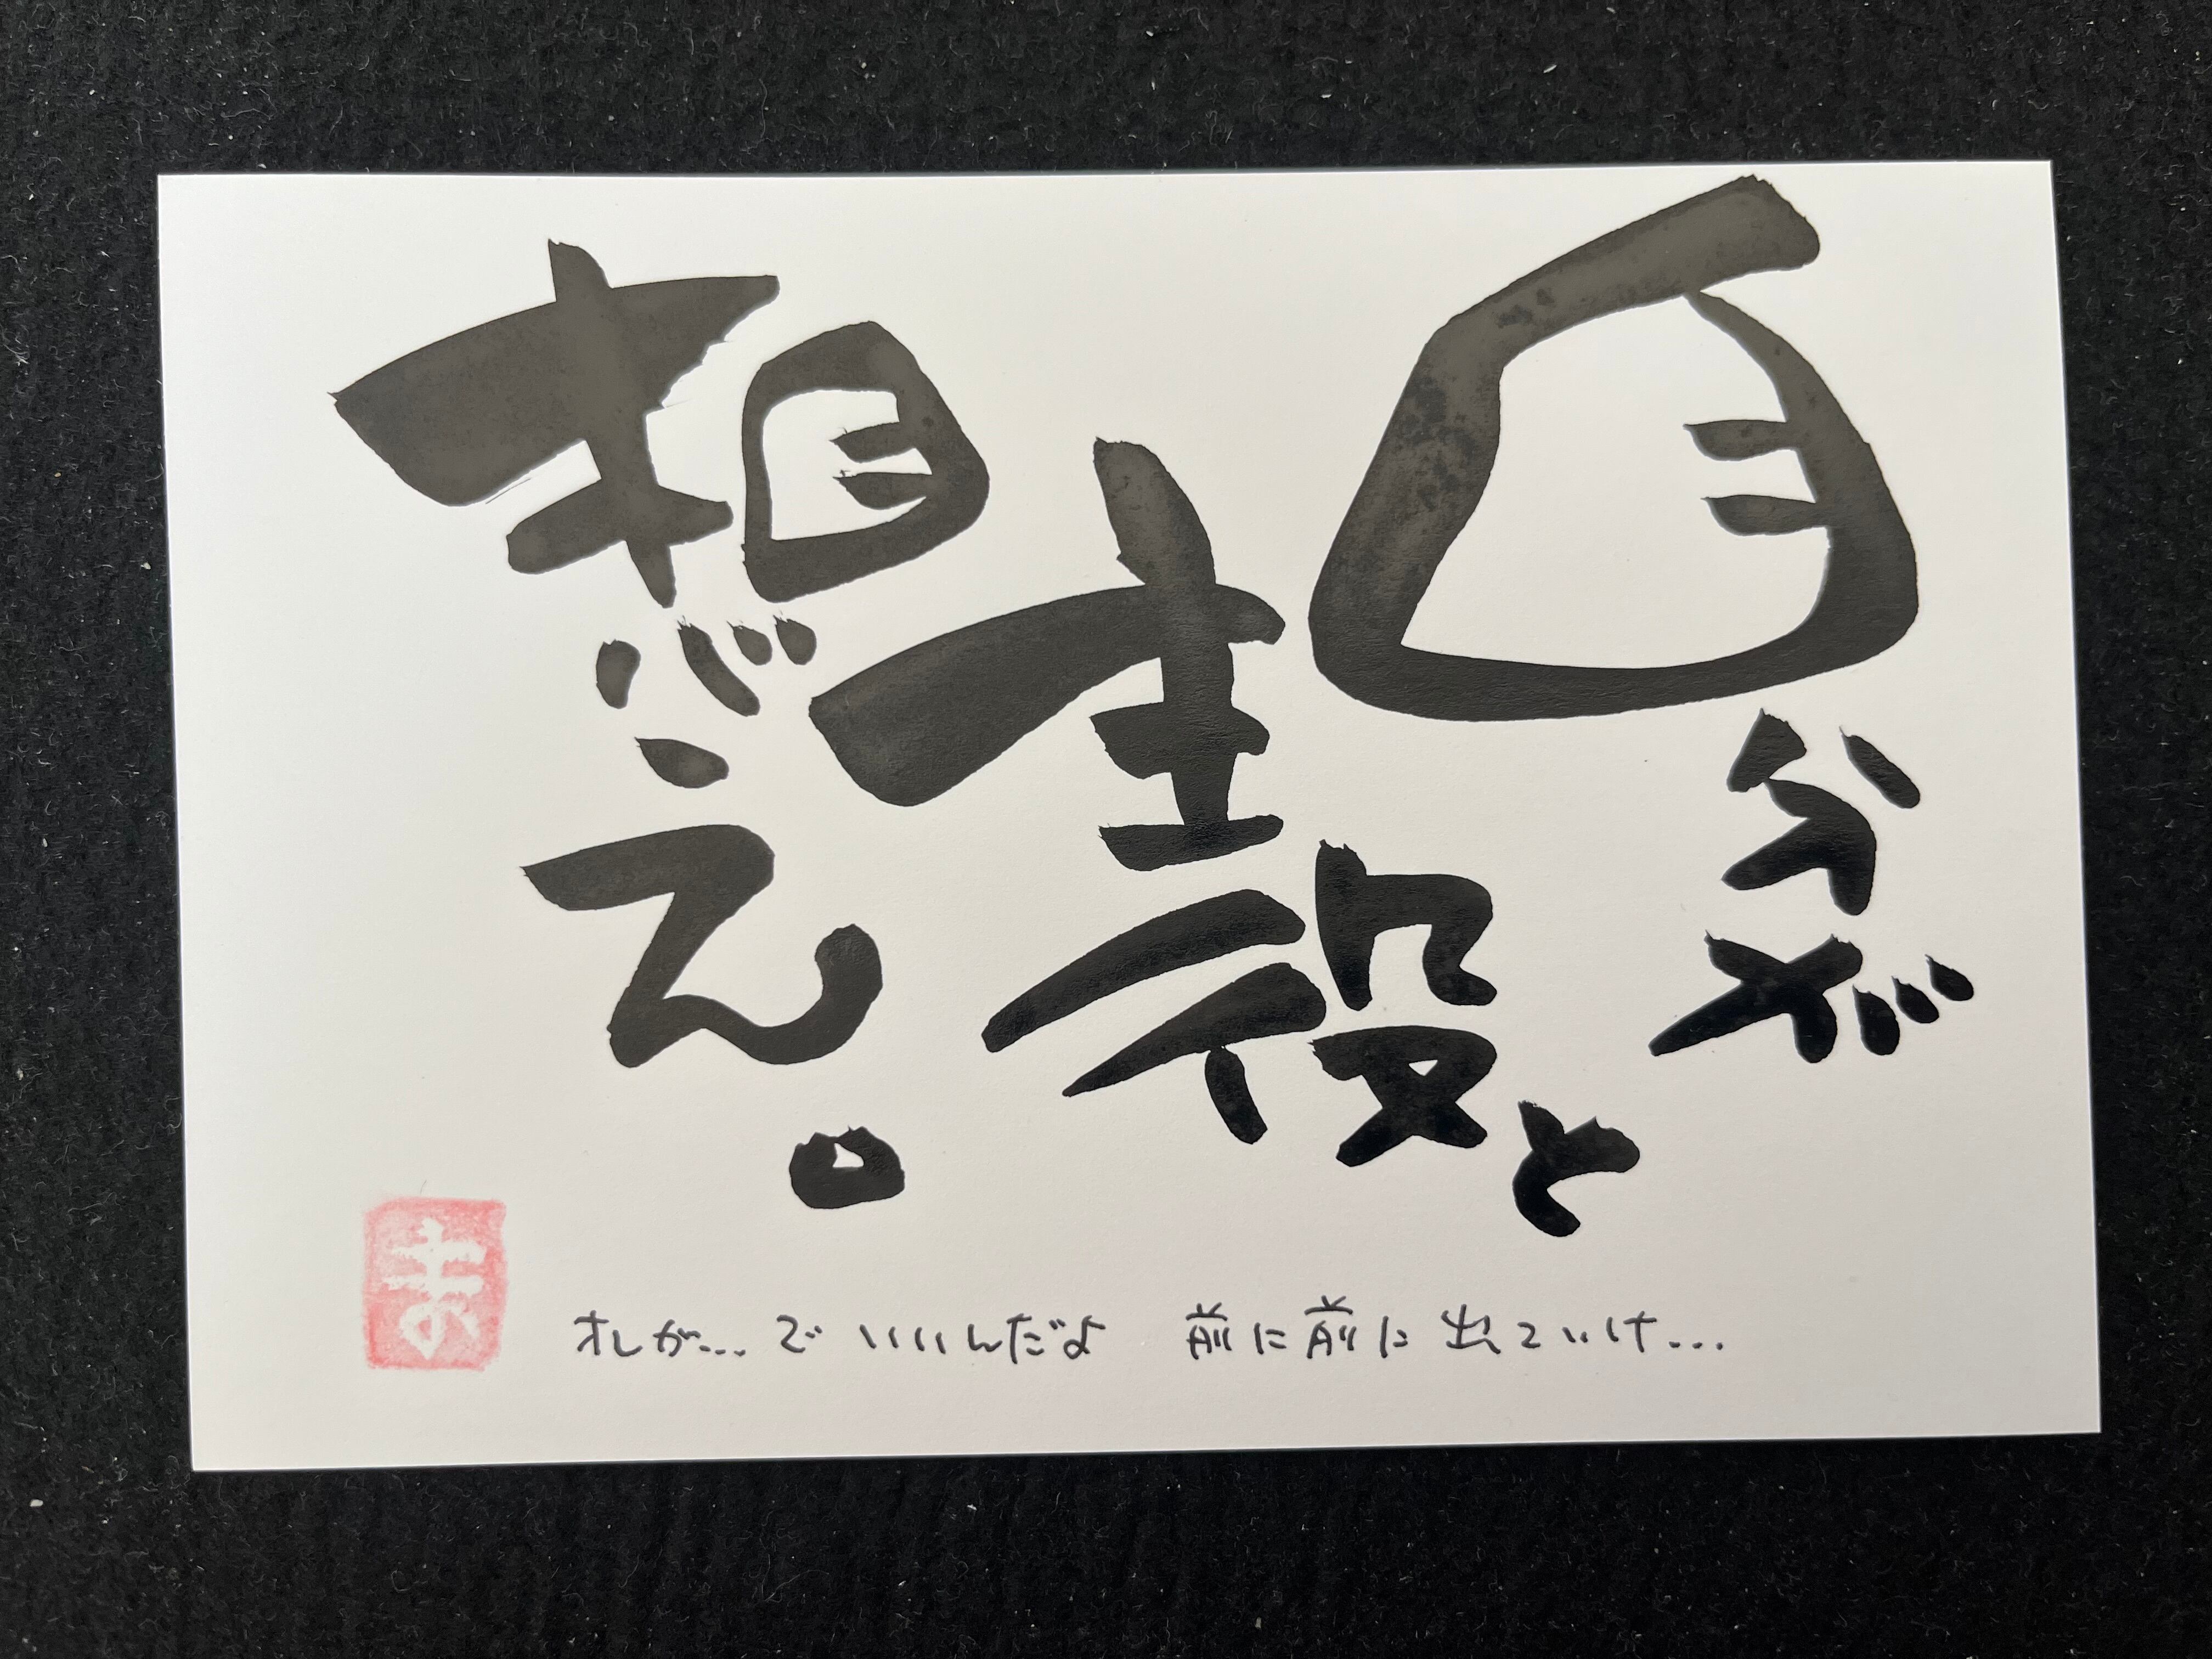 自分が
主役と
想え。
オレが… で いいんだよ 前に前に 出ていけ…
ま